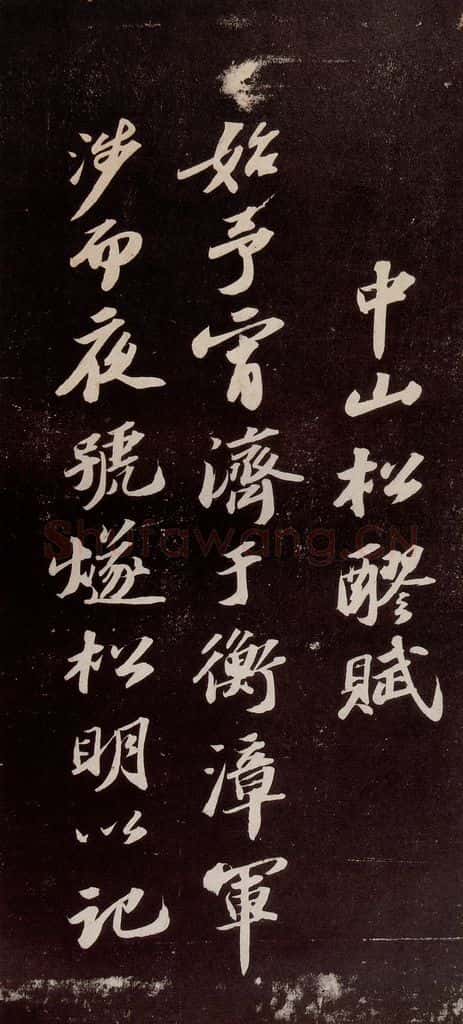 中山松醪賦
始予宵濟于衡漳軍
涉而夜號燧松明以記
Shufawang.CN